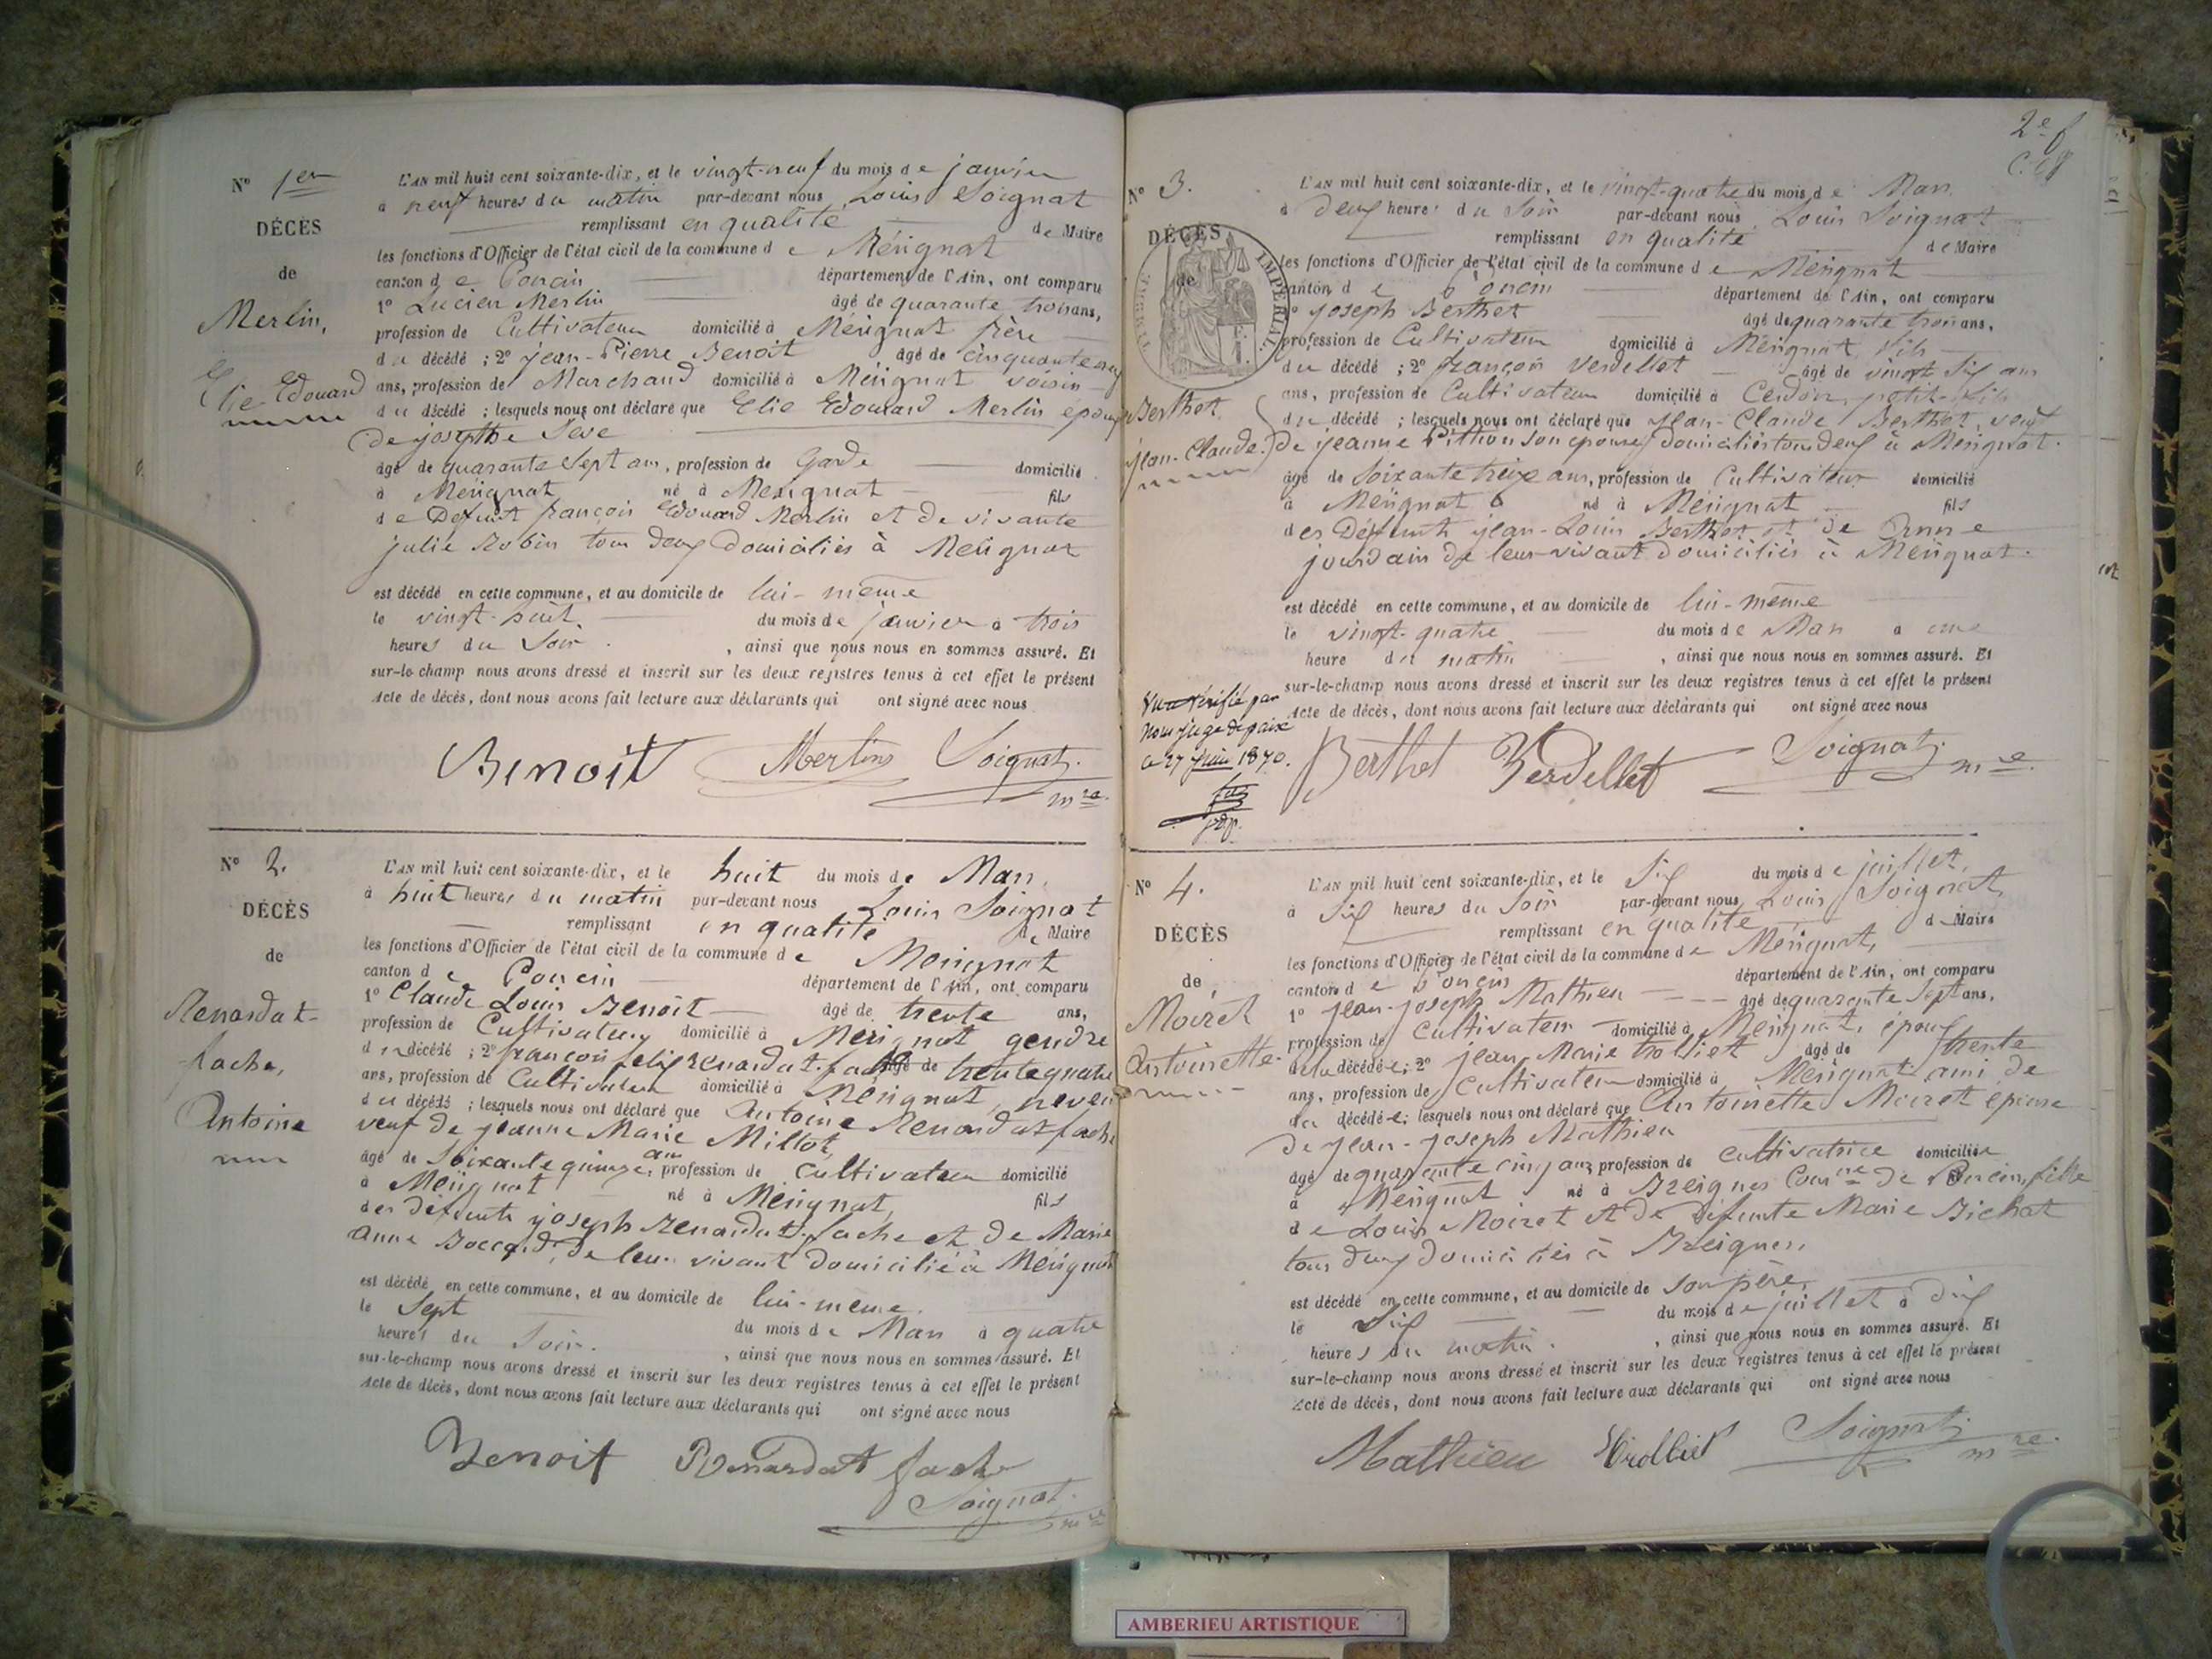 N° 1er
DÉCÈS
de
Merlin,
Elie Edouard
L'AN mil huit cent soixante-dix, et le vingt-neuf du mois de janvier
à neuf heures du matin par-devant nous Louis Soignat
remplissant en qualité de Maire
les fonctions d'Officier de l'état civil de la commune de Mérignat
canton de Poncin département de l'Ain, ont comparu
1° Lucien Merlin âgé de quarante trois ans,
profession de Cultivateur domicilié à Mérignat frère
du décédé ; 2° Jean-Pierre Benoit âgé de cinquante
ans, profession de Marchand domicilié à Mérignat voisin
du décédé ; lesquels nous ont déclaré que Elie Edouard Merlin époux
de josepthe Seve
âgé de quarante sept ans, profession de Garde domicilié
à Mérignat né à Mérignat fils
de Défunt françois Edouard Merlin et de vivante
julie Robin tous deux domiciliés à Mérignat
est décédé en cette commune, et au domicile de lui-même
le vingt-huit du mois de janvier à trois
heures du Soir. , ainsi que nous nous en sommes assuré. Et
sur-le-champ nous avons dressé et inscrit sur les deux registres tenus à cet effet le présent
Acte de décès, dont nous avons fait lecture aux déclarants qui ont signé avec nous
Benoit Merlin Soignat
mre
N° 2.
DÉCÈS
de
Renardat-
fache,
Antoine
L'AN mil huit cent soixante-dix, et le huit du mois de Mars,
à huit heures du matin par-devant nous Louis Soignat
remplissant en qualité de Maire
les fonctions d'Officier de l'état civil de la commune de Mérignat
canton de Poncin département de l'Ain, ont comparu
1° Claude Louis Benoit âgé de trente ans,
profession de Cultivateur domicilié à Mérignat gendre
du décédé ; 2° françois felix renardat-fache âgé de trente quatre
ans, profession de Cultivateur domicilié à Mérignat, neveu
du décédé ; lesquels nous ont déclaré que Antoine Renardat fache
veuf de jeanne Marie Millot,
âgé de Soixante quinze ans, profession de cultivateur domicilié
à Mérignat né à Mérignat, fils
des défunts joseph Renardat-fache et de Marie
Anne de leur vivant domicilié à Mérignat
est décédé en cette commune, et au domicile de lui-même.
le Sept du mois de Mars à quatre
heures du Soir. , ainsi que nous nous en sommes assuré. Et
sur-le-champ nous avons dressé et inscrit sur les deux registres tenus à cet effet le présent
Acte de décès, dont nous avons fait lecture aux déclarants qui ont signé avec nous
Benoit Renardat fache
Soignat
mre
2e f
N° 3.
DÉCÈS
de
TIMBRE IMPÉRIAL
Berthet
jean-Claude.
L'AN mil huit cent soixante-dix, et le vingt-quatre du mois de Mars
à Deux heures du Soir par-devant nous Louis Soignat
remplissant en qualité de Maire
les fonctions d'Officier de l'état civil de la commune de Mérignat
canton de Poncin département de l'Ain, ont comparu
1° Joseph Berthet âgé de quarante trois ans,
profession de Cultivateur domicilié à Mérignat, fils
du décédé ; 2° françois Verdellet âgé de vingt Six ans
ans, profession de Cultivateur domicilié à Cerdon, petit-fils
du décédé ; lesquels nous ont déclaré que Jean-Claude Berthet, veuf
de jeanne Pithion son épouse, domiciliés tous deux à Mérignat.
âgé de Soixante treize ans, profession de Cultivateur domicilié
à Mérignat né à Mérignat fils
des Défunts jean-Louis Berthet et de Anne
jourdain de leur vivant domiciliés à Mérignat.
est décédé en cette commune, et au domicile de lui-même
le vingt-quatre du mois de Mars à une
heure du matin , ainsi que nous nous en sommes assuré. Et
sur-le-champ nous avons dressé et inscrit sur les deux registres tenus à cet effet le présent
Acte de décès, dont nous avons fait lecture aux déclarants qui ont signé avec nous
Vu et vérifié par
nous juge de paix
le 27 juin 1870.
jdp.
Berthet Verdellet Soignat
mre
N° 4.
DÉCÈS
de
Moiret
Antoinette
L'AN mil huit cent soixante-dix, et le Six du mois de juillet,
à Six heures du Soir par-devant nous Louis Soignat,
remplissant en qualité de Maire
les fonctions d'Officier de l'état civil de la commune de Mérignat,
canton de Poncin département de l'Ain, ont comparu
1° jean-joseph Mathieu âgé de quarante Sept ans,
profession de cultivateur domicilié à Mérignat, époux
de la décédée; 2° jean Marie trolliet âgé de trente
ans, profession de cultivateur domicilié à Mérignat ami de
la décédée; lesquels nous ont déclaré que Antoinette Moiret épouse
de Jean-joseph Mathieu
âgé de quarante cinq ans profession de cultivatrice domiciliée
à Mérignat né à Breignes Comne de Poncin, fille
de Louis Moiret et de Défunte Marie Bichat
tous deux domiciliés à Breignes,
est décédé en cette commune, et au domicile de son père,
le Six du mois de juillet à dix
heures du matin. , ainsi que nous nous en sommes assuré. Et
sur-le-champ nous avons dressé et inscrit sur les deux registres tenus à cet effet le présent
Acte de décès, dont nous avons fait lecture aux déclarants qui ont signé avec nous
Mathieu trolliet Soignat
mre
AMBERIEU ARTISTIQUE